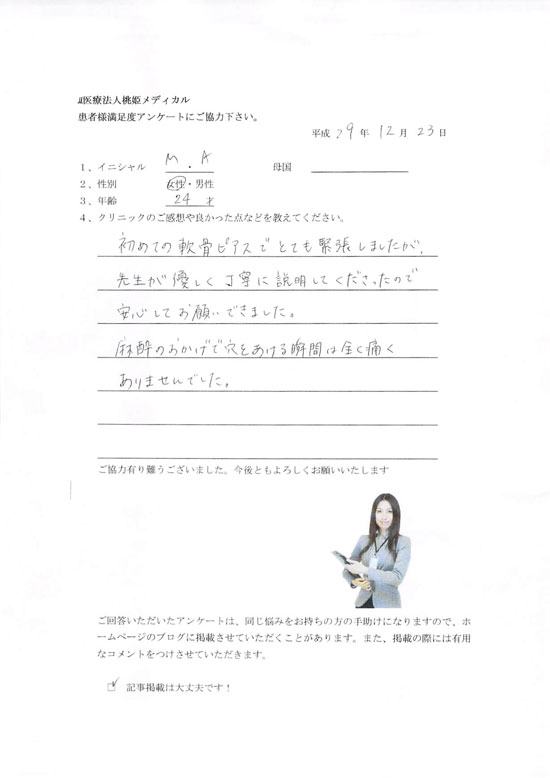 医療法人桃姫メディカル
患者様満足度アンケートにご協力下さい。
平成 29 年 12 月 23 日
1、イニシャル M . A 母国
2、性別 女性・男性
3、年齢 24 才
4、クリニックのご感想や良かった点などを教えてください。
初めての軟骨ピアスでとても緊張しましたが、
先生が優しく丁寧に説明してくださったので
安心してお願いできました。
麻酔のおかげで穴をあける瞬間は全く痛く
ありませんでした。
ご協力有り難うございました。今後ともよろしくお願いいたします
ご回答いただいたアンケートは、同じ悩みをお持ちの方の手助けになりますので、ホ
ームページのブログに掲載させていただくことがあります。また、掲載の際には有用
なコメントをつけさせていただきます。
☑ 記事掲載は大丈夫です！